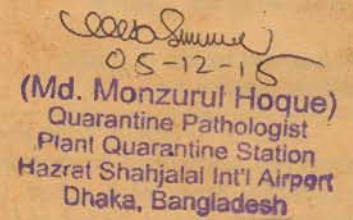 05-12-15
(Md. Monzurul Hoque)
Quarantine Pathologist
Plant Quarantine Station
Hazrat Shahjalal Int'l Airport
Dhaka, Bangladesh